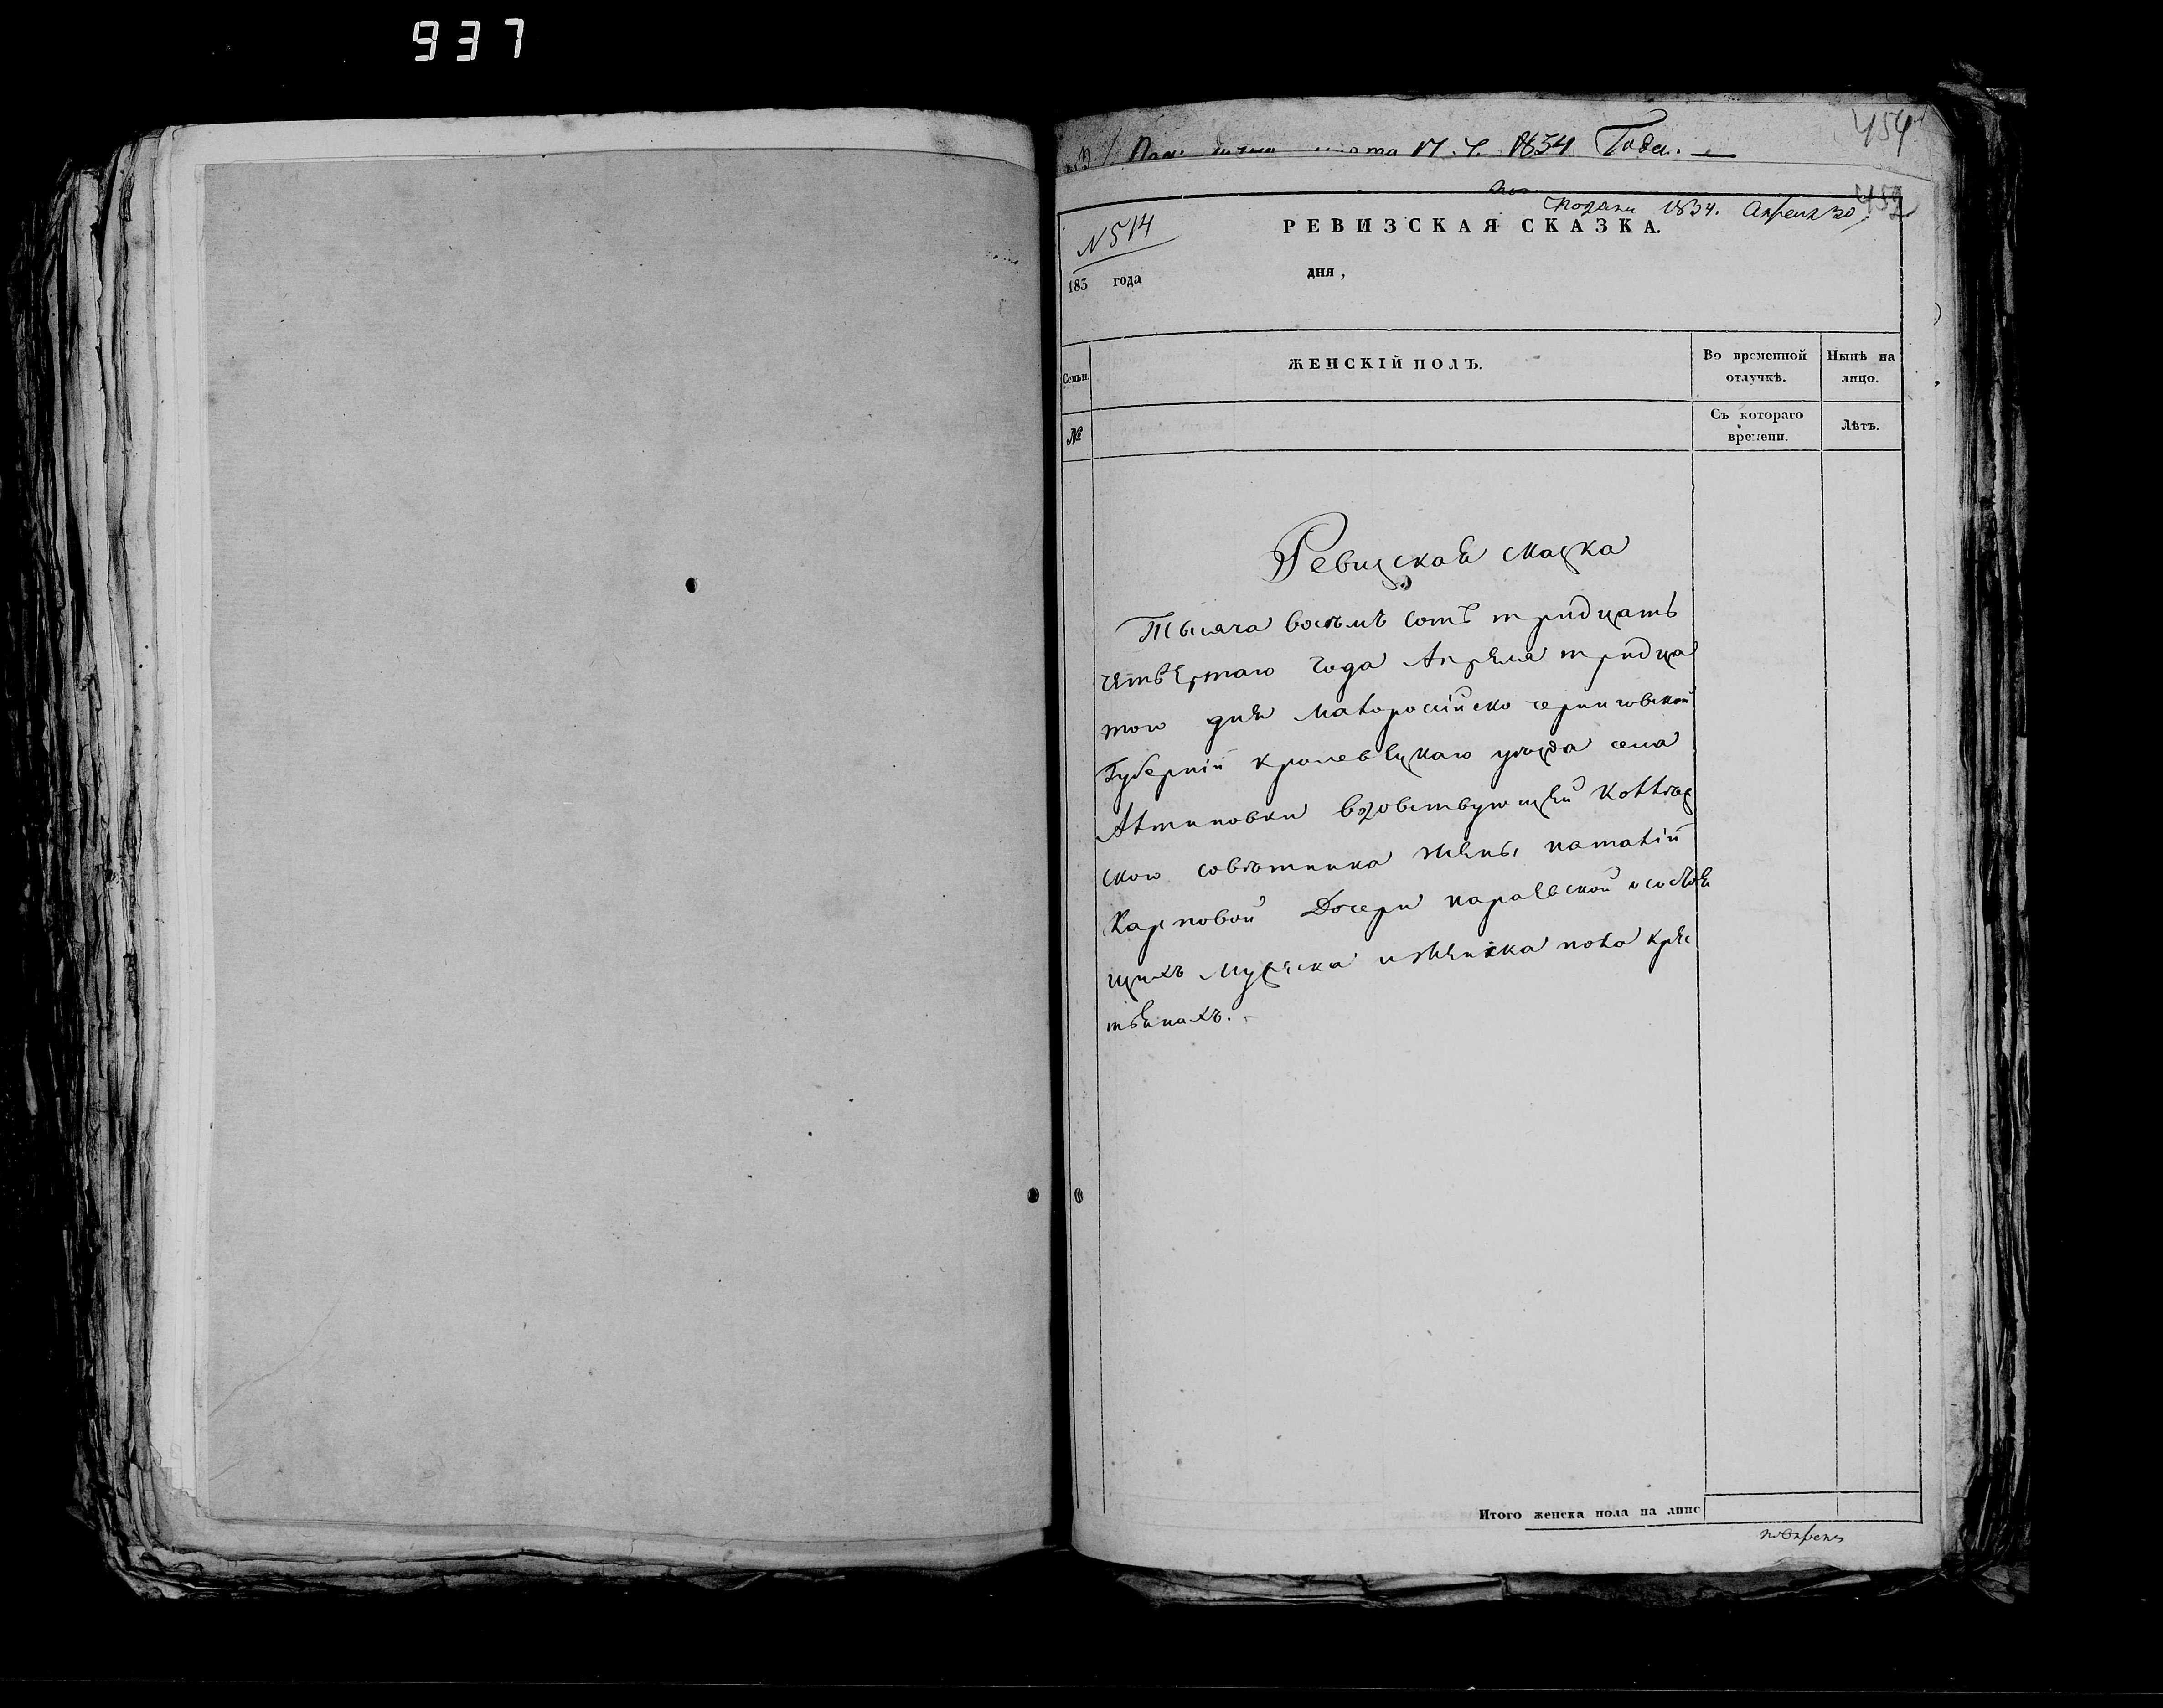 937
454
17. Ч. 1834 Года. —
452
подана 1834. Апреля 30
N 514
РЕВИЗСКАЯ СКАЗКА.
183 года дня,
Семьи. ЖЕНСКІЙ ПОЛЪ. Во временной отлучкѣ. Нынѣ на лицо.
№ Съ котораго времени. Лѣтъ.
Ревизская сказка
Тысяча восемъ сотъ тридцать
четвертаго года Апреля тридца
того дня Малоросійско черниговской
Губерніи кролевецкаго уѣзда села
Алтиновки вдовствующей Коллѣз
ского совѣтника жены наталіи
Карповой Дочери караевской о состоя
щихъ мужеска и женска пола крес
тьянахъ. -
Итого женска пола на лицо